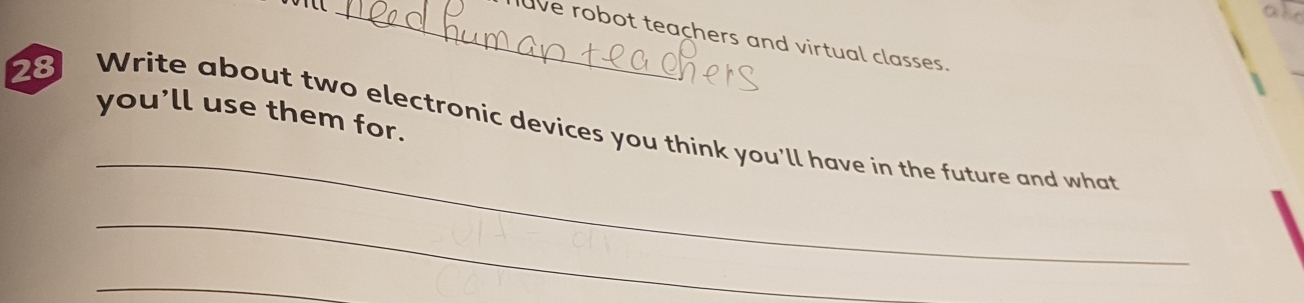 need
robot teachers and virtual classes.
human teachers
28 Write about two electronic devices you think you'll have in the future and what
you'll use them for.